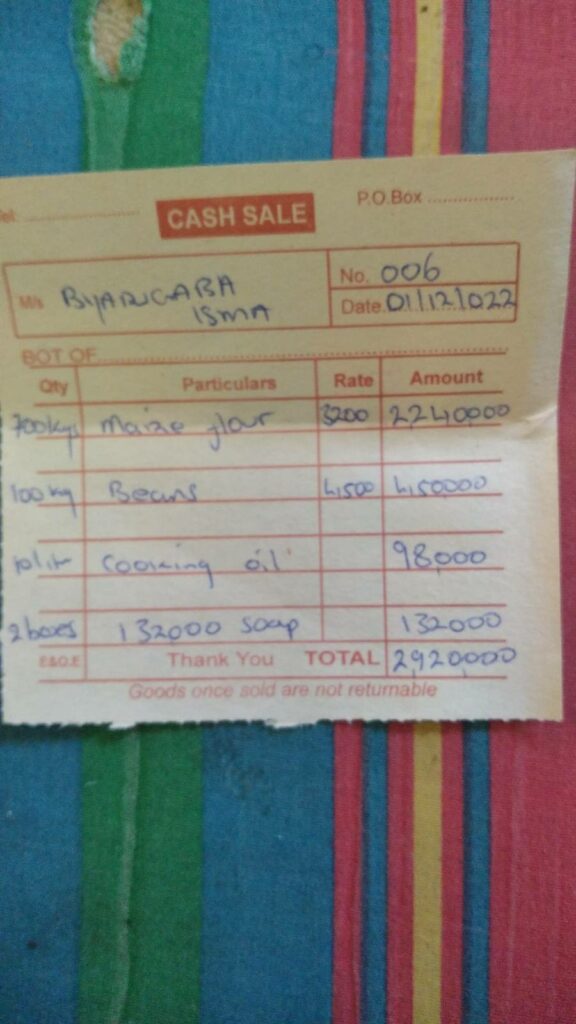 Tel: ................ CASH SALE P.O.Box ................
M/s BYARUGABA ISMA
No. 006
Date. 01/12/022
BOT OF................
Qty Particulars Rate Amount
700kgs maize flour 3200 2240000
100kg Beans 4,500 450000
10lit cooking oil 98,000
2boxes 132000 soap 132000
E&O.E Thank You TOTAL 2,920,000
Goods once sold are not returnable